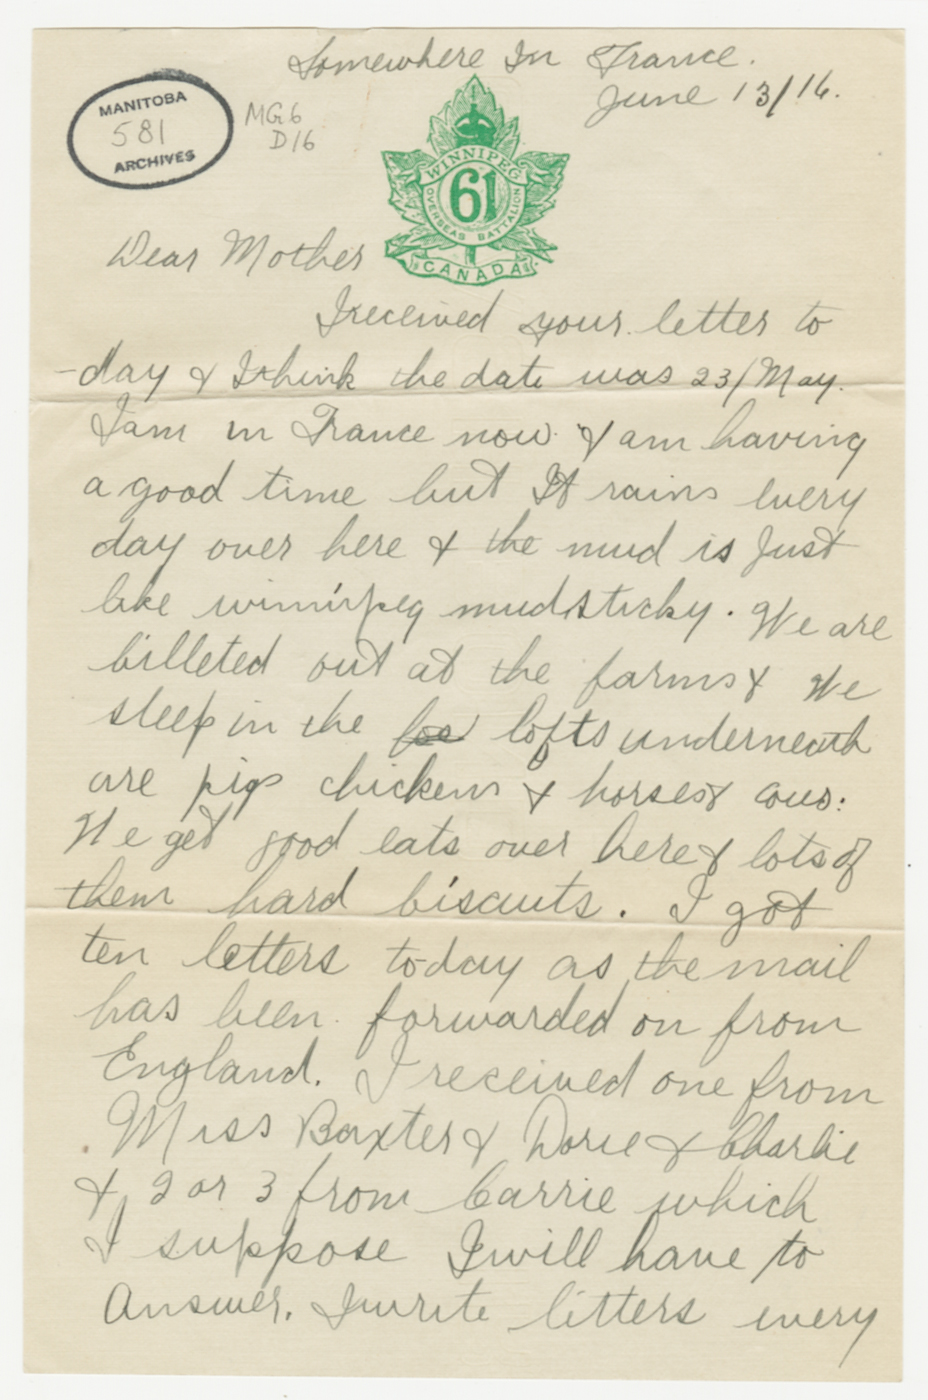 Somewhere In France.
June 13/16.
MANITOBA
581
ARCHIVES
MG6
D16
WINNIPEG
61
OVERSEAS BATTALION
CANADA
Dear Mother
I received your letter to
-day & I think the date was 23/May.
I am in France now & am having
a good time but It rains every
day over here & the mud is Just
like winnipeg mud sticky. We are
billeted out at the farms & We
sleep in the lofts underneath
are pigs chickens & horses & cows:
We get good eats over here & lots of
them hard biscuits. I got
ten letters today as the mail
has been forwarded on from
England. I received one from
Miss Baxter & Dorie & Charlie
& 2 or 3 from Carrie which
I suppose I will have to
Answer. I write letters every